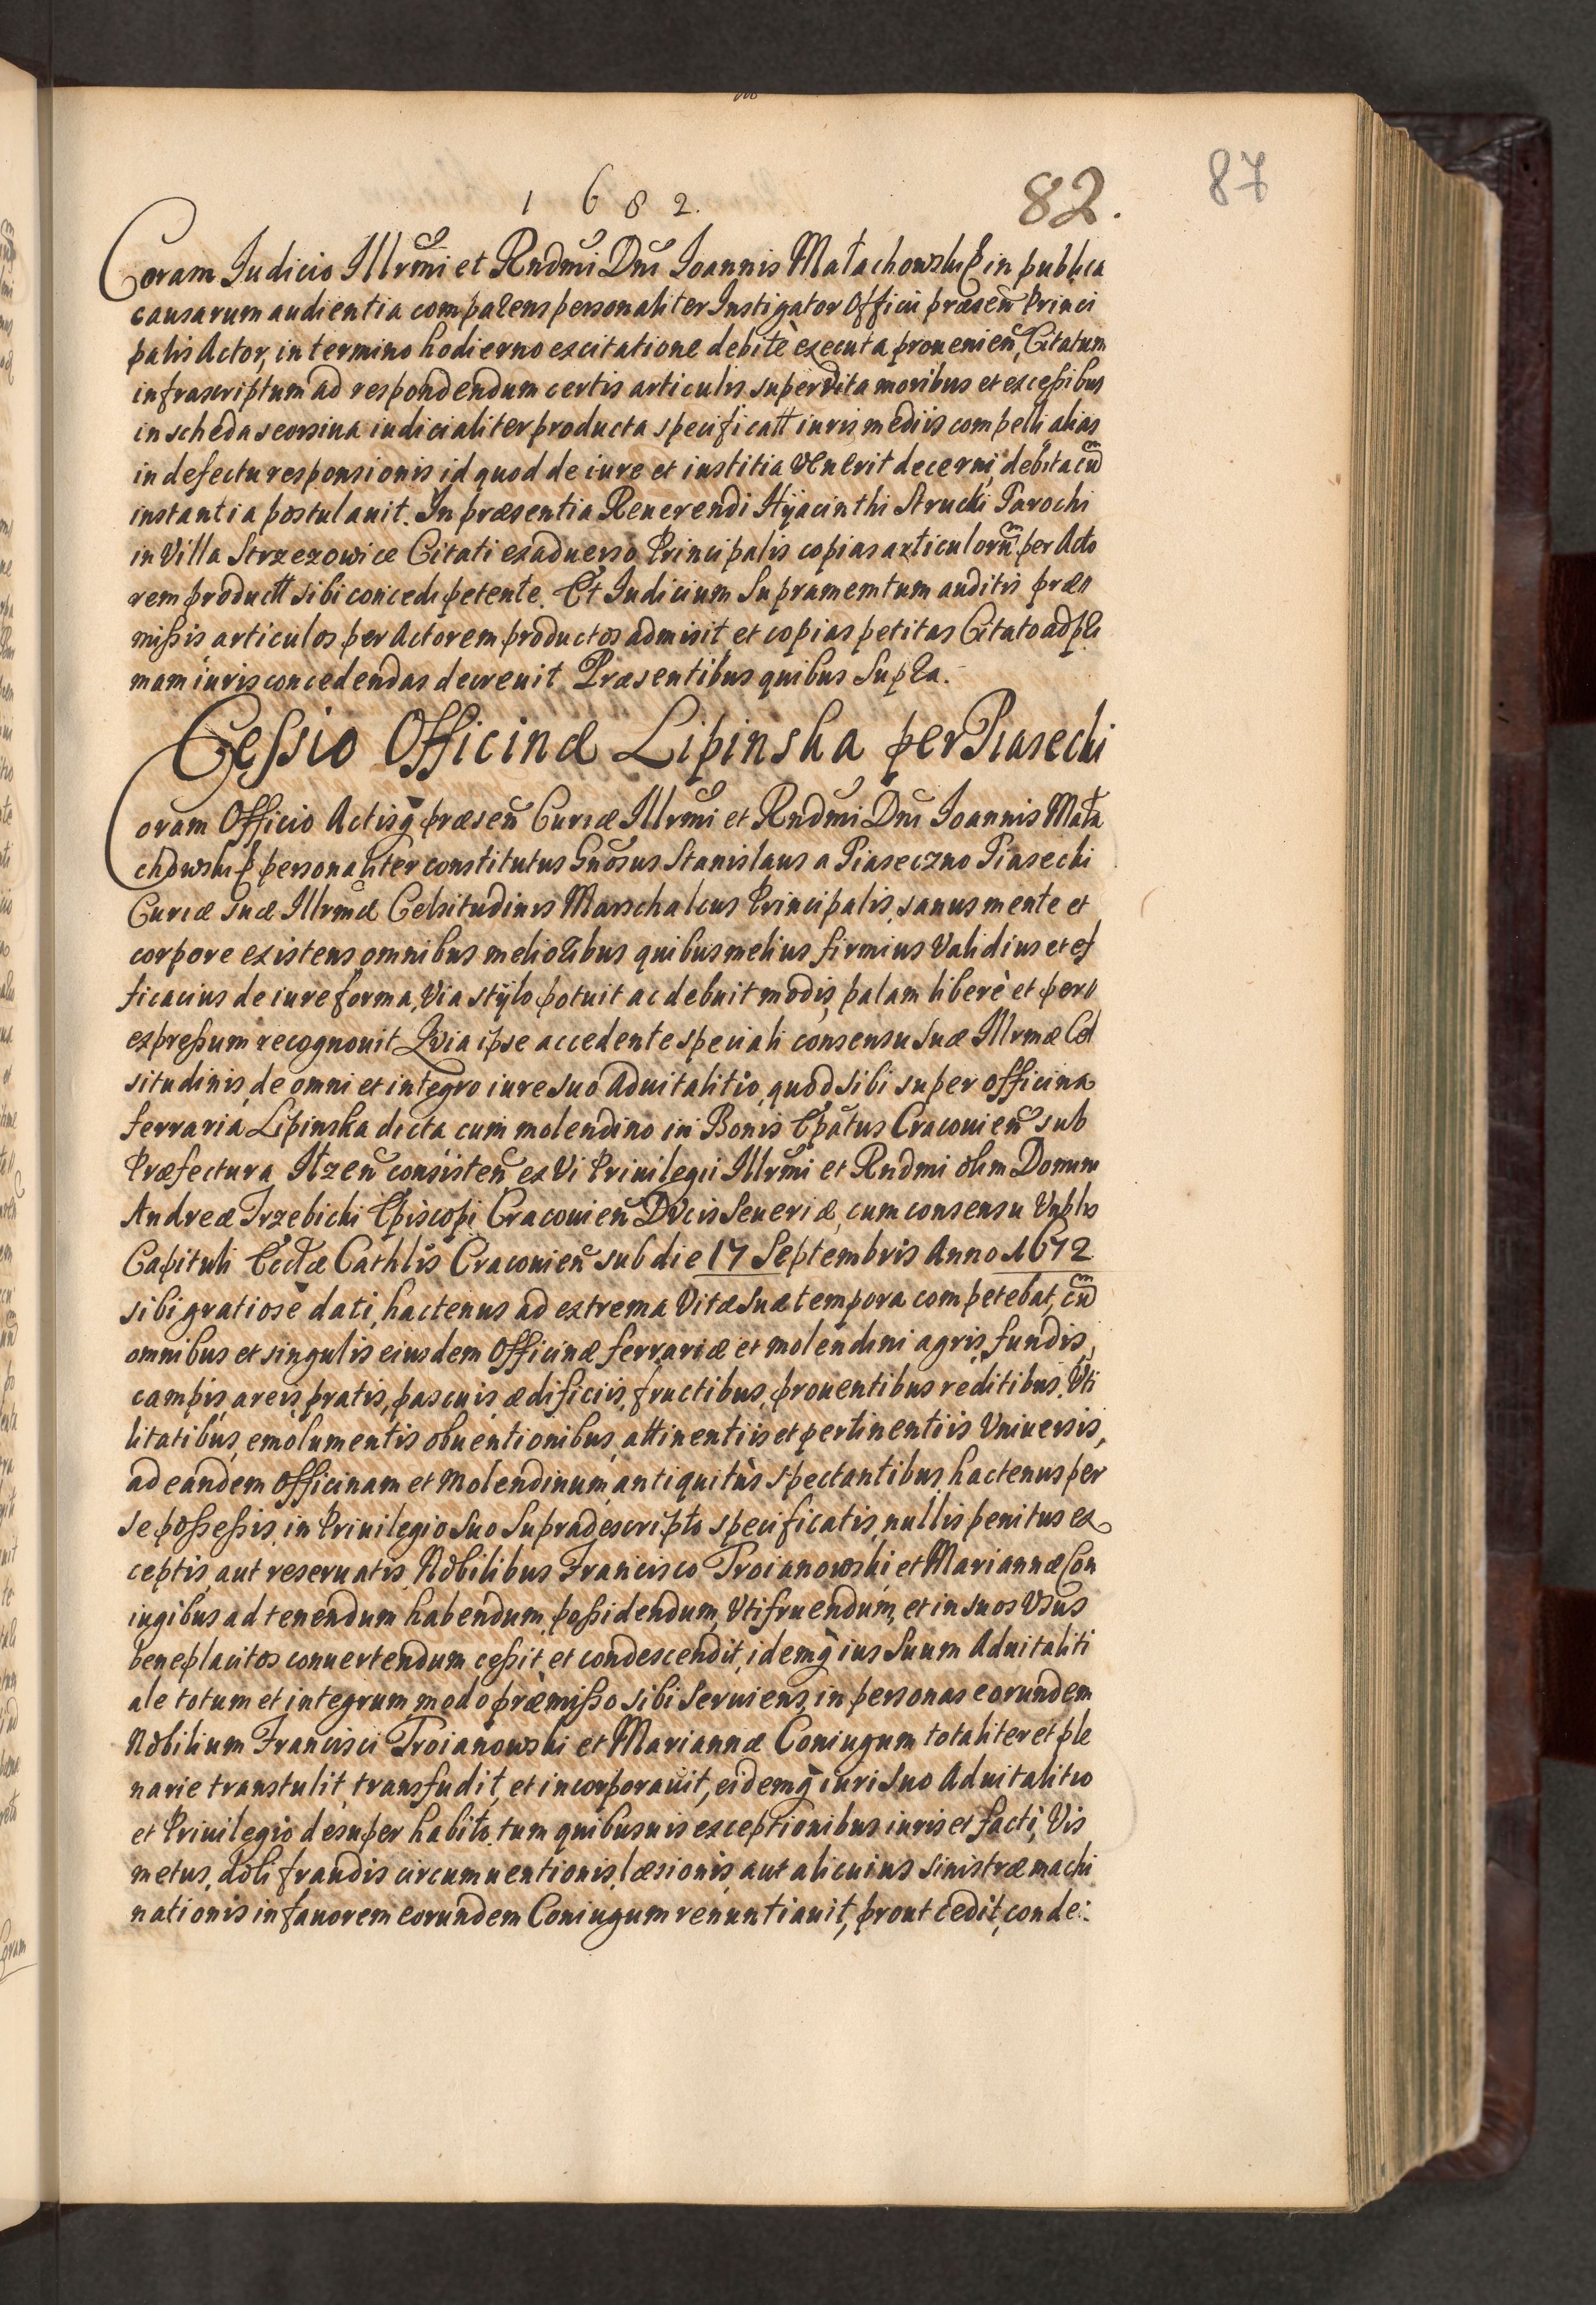 1682.
82.
87
Coram Judicio Illrmi et Rndmi Dni Joannis Małachowski in publica
causarum audientia comparens personaliter Instigator Officii præseñ Princi
palis Actor, in termino hodierno ex citatione debitè executa proueniеñ, Citatum
infrascriptum ad respondendum certis articulis super vita moribus et excessibus
in scheda seorsiua iudicialiter producta specificatt iuris mediis compelli alias
in defectu responsionis id quod de iure et iustitia venerit decerni, debita cũ
instantia postulauit. In præsentia Reuerendi Hyacinthi Strucki Parochi
in Villa Strzezowice Citati ex aduerso Principalis copias articulorũ per Acto
rem productt sibi concedi petente. Et Judicium Supramemtum auditis præ//
missis articulos per Actorem productos admisit et copias petitas Citato ad pri
mam iuris concedendas decreuit Præsentibus quibus Supra.
Cessio Officinæ Lipinska per Piasecki
Coram Officio Actisq præseñ Curiæ Illrmi et Rndmi Dni Joannis Mała
chowski personaliter constitutus Gnosus Stanislaus a Piaseczno Piasecki
Curiæ suæ Illrmæ Celsitudinis Marschalcus Principalis, sanus mente et
corpore existens, omnibus melioribus quibus melius firmius Validius et ef
ficacius de iure forma, Via stÿlo potuit ac debuit modis, palam liberè et per//
expressum recognouit Quia ipse accedente speciali consensu suæ Illrmæ Cel
situdinis, de omni et integro iure suo Aduitalitio, quod sibi super officina
ferraria Lipinska dicta cum molendino in Bonis Epatus Cracouieñ sub
Præfectura Ilzeñ consisteñ ex Vi Priuilegii Illrmi et Rndmi olim Domini
Andreæ Trzebicki Episcopi Cracouieñ Ducis Seueriæ, cum consensu Vnblis
Capituli Eccłæ Cathlis Cracouieñ sub die 17 Septembris Anno 1672
sibi gratiosè dati, hactenus ad extrema Vitæ suæ tempora competebat, cũ
omnibus et singulis eiusdem Officinæ ferrariæ et molendini agris, fundis,
campis, areis, pratis, pascuis, ædificiis, fructibus, prouentibus reditibus, Vti
litatibus, emolumentis obuentionibus, attinentiis et pertinentiis Vniuersis,
ad eandem Officinam et Molendinum, antiquitùs spectantibus, hactenus per
se possessis, in Priuilegio suo Supradescripto specificatis, nullis penitus ex
ceptis, aut reseruatis, Nobilibus Francisco Troianowski, et Mariannæ Con
iugibus ad tenendum, habendum, possidendum, Vtifruendum, et in suos Vsus
beneplacitos conuertendum cessit, et condescendit, idemq ius Suum Aduitaliti
ale totum et integrum, modo præmisso sibi Seruiens, in personas eorundem
Nobilium Francisci Troianowski et Mariannæ Coniugum totaliter et ple
narie transtulit, transfudit, et incorporauit, eidemq iuri suo Aduitalitio
et Priuilegio desuper habito, tum quibusuis exceptionibus iuris et facti, Vis
metus, doli fraudis circumuentionis, læsionis, aut alicuius sinistræ machi
nationis in fauorem eorundem Coniugum renuntiauit, prout cedit, conde: